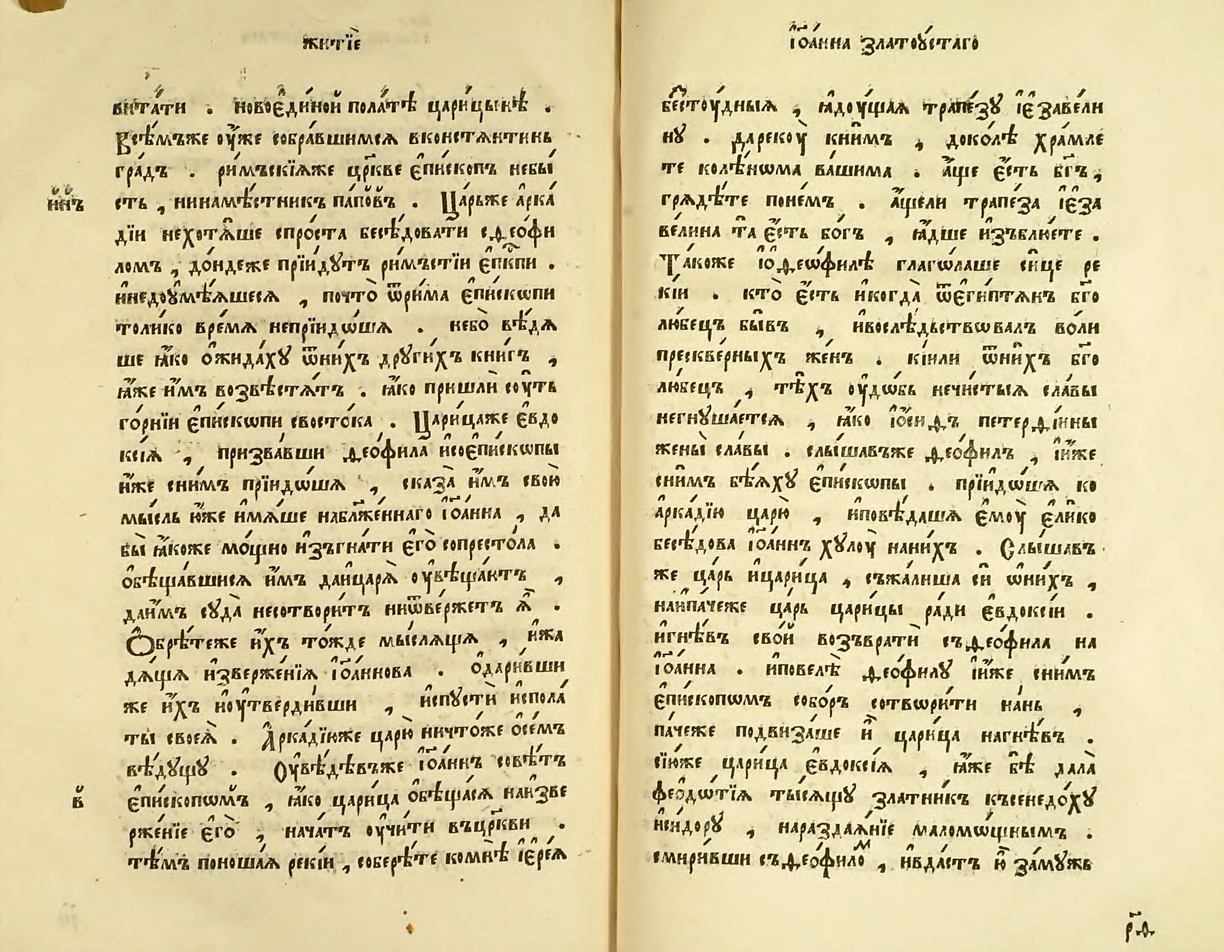 житїе
витати . новоединой полатѣ царицынѣ .
Всѣмъже ѹже собравшимся вконстянтинь
градъ . римъскїяже црк҃ве епископъ небы
инъ
сть , нинамѣстникъ паповъ . Царьже арка
дїи нехотяше спроста бесѣдовати сѳеофи
ломъ , дондеже прїидꙋтъ римъстїи еп҃кпи .
инедоꙋмѣяшеся , почто ѿрима епискѡпи
толико время непрїидѡшѧ . небо вѣдѧ
ше ꙗко ожидахꙋ ѿнихъ дрꙋгихъ книгъ ,
ꙗже имъ возвѣстятъ . ꙗко пришли сѹть
горнїи епискѡпи свостока . Царицаже евдо
ксїѧ , призвавши ѳеофила исоепискѡпы
иже снимъ прїидѡшѧ , сказа имъ свою
мысль юже имѧше наблаженнаго іѡ҃анна , да
бы ꙗкоже мощно изъгнати его сопрестола .
обѣщавшися имъ даицарѧ ѹвѣщаютъ ,
даимъ сꙋда несотворитъ ниѿвержетъ ѧ .
Обрѣтеже ихъ тожде мыслѧщѧ , ижа
дѧщѧ изверженїѧ іѡ҃аннова . одаривши
же ихъ иѹтвердивши , испꙋсти испола
ты своеѧ . Аркадїюже царю ничтоже осемъ
вѣдꙋщꙋ . Ѹвѣдѣвъже іѡ҃аннъ совѣтъ
в
епискѡпѡмъ , ꙗко царица обѣщасѧ наизве
рженїе его , начатъ ѹчити въцр҃кви .
тѣмъ поношаѧ рекїи , соберѣте комнѣ іереѧ
іѡ҃анна златоꙋстаго
бестѹдныѧ , ꙗдѹщаѧ трапезꙋ іезавели
нꙋ . дарекѹ книмъ , доколѣ храмле
те колѣнѡма вашима . аще есть бг҃ъ ,
грѧдѣте понемъ . ащели трапеза іеза
велина та есть богъ , ꙗдше изъблюете .
Такоже іоѳеѡфилѣ глагѡлаше сице ре
кїи . кто есть иногда ѿегиптѧнъ бг҃о
любецъ бывъ , ивослѣдьствѡвалъ воли
прескверныхъ женъ . кіили ѿнихъ бг҃о
любецъ , тѣхъ ѹдѡбь нечистыѧ славы
негнꙋшаетсѧ , ꙗко іосиѳъ петерѳіины
жены славы . слышавъже ѳеофилъ , іиже
снимъ бѣѧхꙋ епискѡпы . прїидѡшѧ ко
аркадїю царю , иповѣдашѧ емѹ елико
бесѣдова іѡ҃аннъ хꙋлѹ нанихъ . Слышавъ
же царь ицарица , съжалиша си ѡнихъ ,
наипачеже царь царицы ради евдоксїи .
игнѣвъ свой возъврати съѳеофила на
іѡ҃анна . иповелѣ ѳеофилꙋ іиже снимъ
епискѡпѡмъ соборъ сотвѡрити нань ,
пачеже подвизаше и царица нагнѣвъ .
сїюже царица евдоксїѧ , ꙗже бѣ дала
феодѡтїѧ тысѧщꙋ златникъ къкенедохꙋ
исидорꙋ , нараздаѧнїе маломѡщнымъ .
смиривши съѳеофиломъ , ивдастъ ю замꙋжь
рѳ